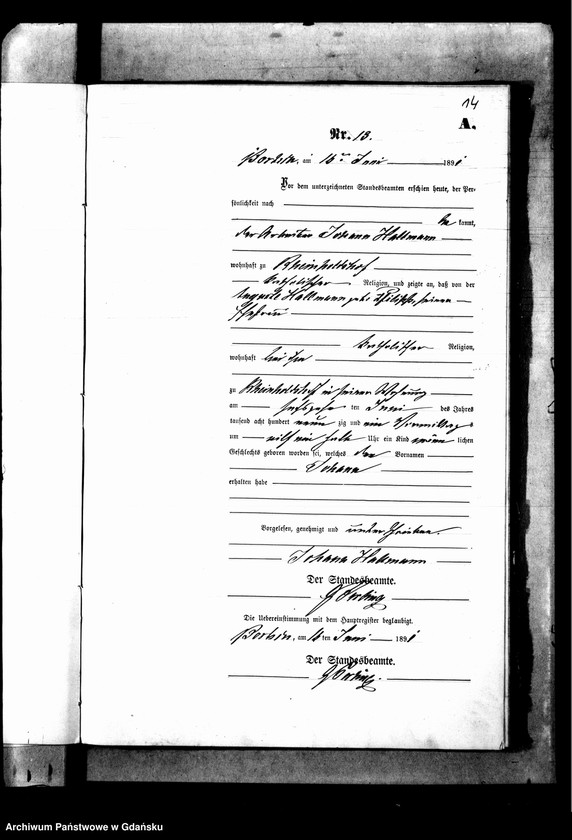 14
A.
Nr. 13.
am 16ten Juni 1891
Vor dem unterzeichneten Standesbeamten erschien heute, der Per-
sönlichkeit nach
be kannt,
der Arbeiter Johann Hallmann
wohnhaft zu Rheinholdshof
katholischer Religion, und zeigte an, daß von der
Auguste Hallmann geb. seiner
Ehefrau
katholischer Religion,
wohnhaft bei ihm
zu Rheinholdshof in seiner Wohnung
am ten Juni des Jahres
tausend acht hundert neun zig und ein Vormittags
um elf ein halb Uhr ein Kind männ lichen
Geschlechts geboren worden sei, welches den Vornamen
Johann
erhalten habe
Vorgelesen, genehmigt und unterschrieben.
Johann Hallmann
Der Standesbeamte.
Die Uebereinstimmung mit dem Hauptregister beglaubigt.
am 16 ten Juni 1891
Der Standesbeamte.
Archiwum Państwowe w Gdańsku